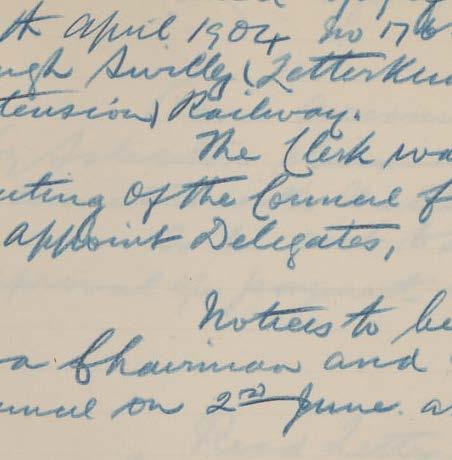 th April 1904 no 176
ugh Swilly (Letterken
tension) Railway.
The Clerk wa
eeting of the Council f
appoint Delegates,
Notices to be
a Chairman and
uncil on 2nd June a